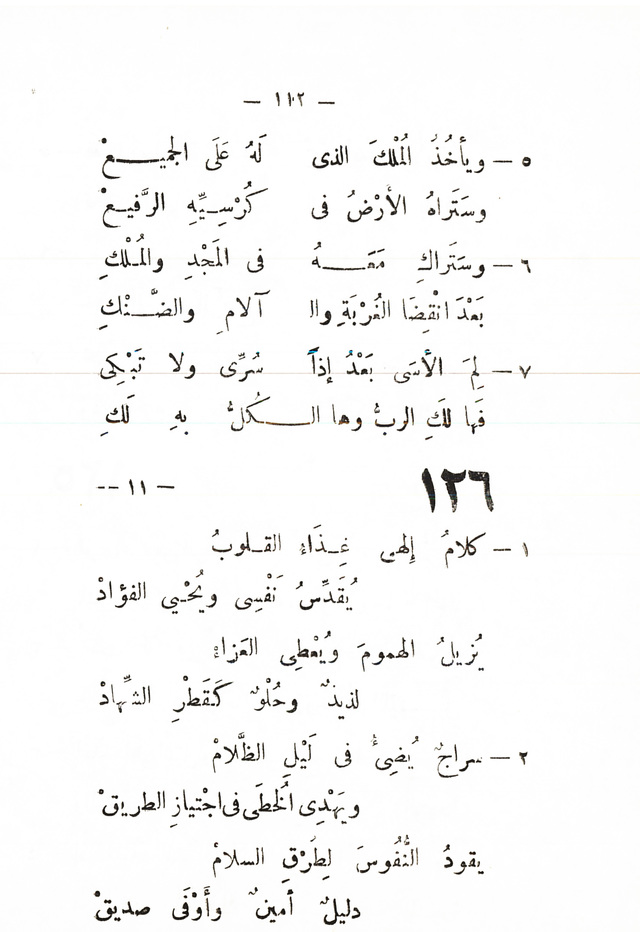 — ١١٢ —
٥ — ويأخُذُ المُلْكَ الذى لَهُ عَلَى الجميــعْ
وسَتَراهُ الأَرْضُ فى كُرْسِيِّهِ الرَّفيعْ
٦ — وسَتَراكِ مَعَــهُ فى المَجْدِ والمُلْكِ
بَعْدَ انْقِضَا الغُرْبَةِ والـ آلامِ والضَّنْكِ
٧ — لِمَ الأَسَى بَعْدُ إذاً سُرِّى ولا تَبْكِى
فَها لَكِ الربُّ وها الــكُلُّ بهِ لَكِ
١٢٦ — ١١ --
١ — كلامُ إلهى غِذَاءُ القلوبُ
يُقَدِّسُ نَفْسِى ويُحْيي الفؤادْ
يُزيلُ الهمومَ ويُعْطِى العَزاءْ
لذيذٌ وحُلْوٌ كَقَطْرِ الشِّهادْ
٢ — سراجٌ يُضِئُ فى لَيْلِ الظَّلامْ
ويَهْدِى الخُطَى فى اجْتيازِ الطريقْ
يقودُ النُّفُوسَ لِطُرْقِ السلامْ
دليلٌ أمينٌ وأَوْفَى صديقْ